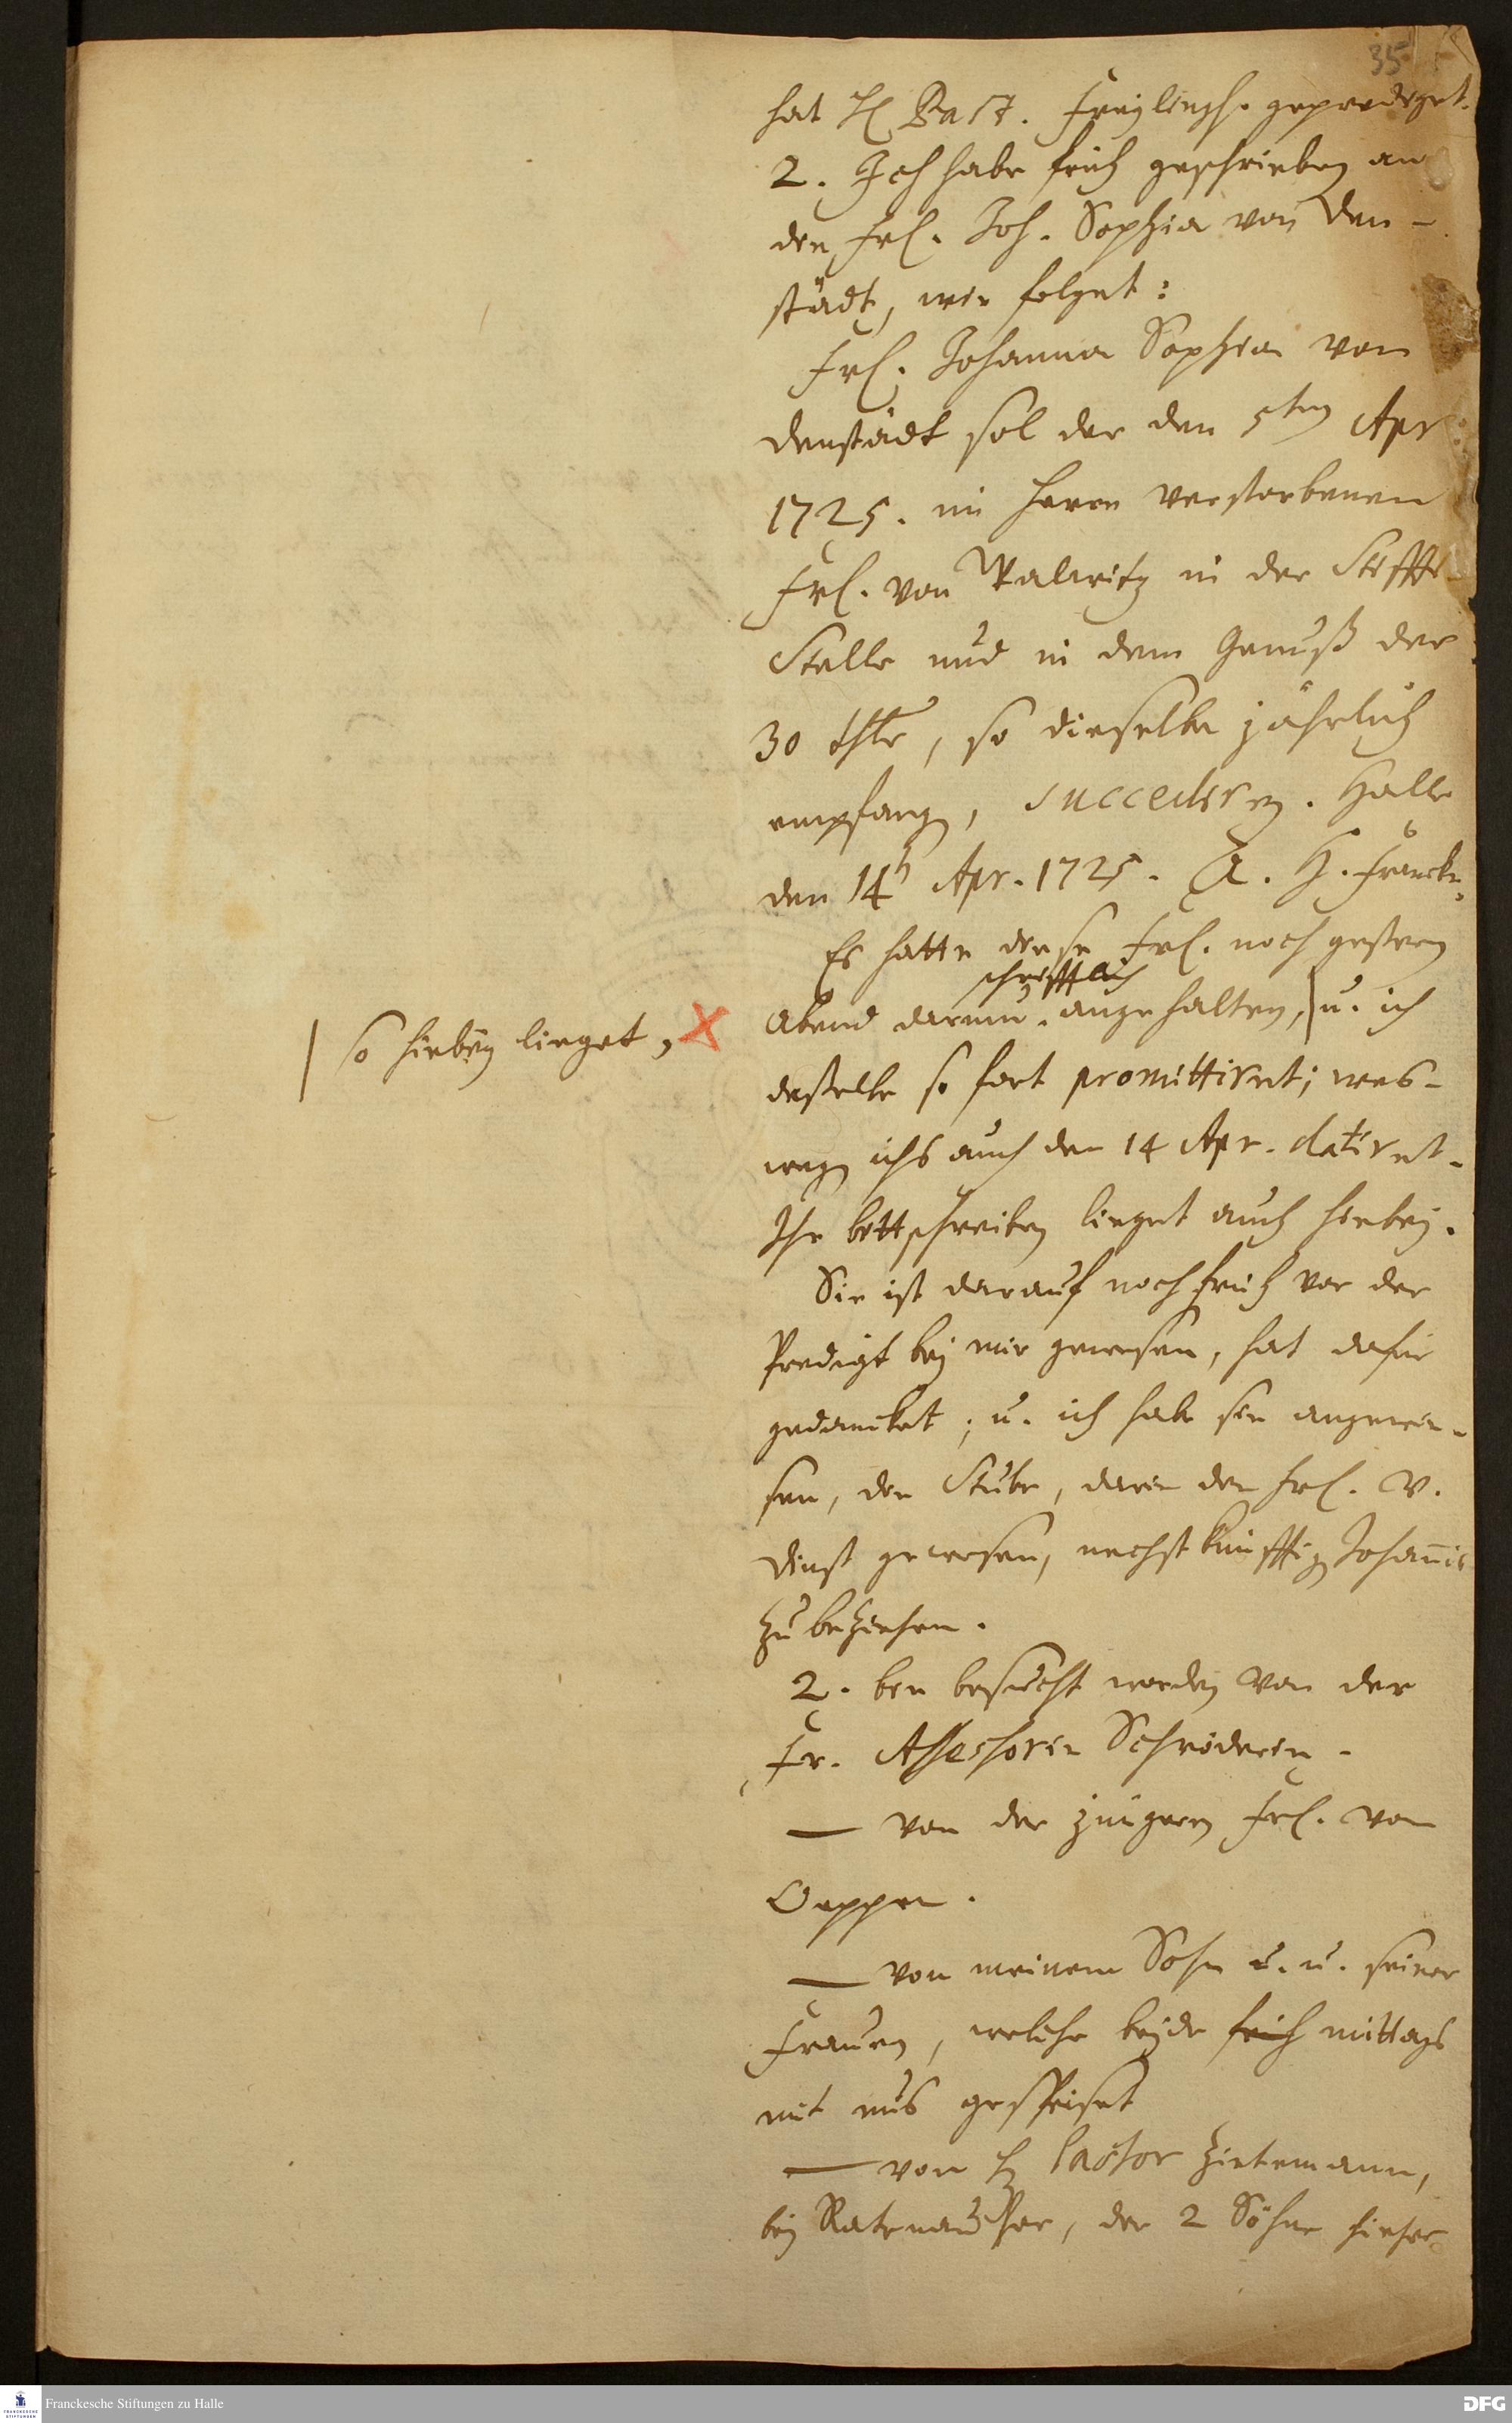 35
hat H. Past. Freylingh. geprediget.
2. Ich habe früh geschrieben an
die Frl. Joh. Sophia von Den-
städt, wie folget:
Frl. Johanna Sophia von
Denstädt sol der den 5ten Apr
1725. im Herrn verstorbenen
Frl. von in der Stiffts-
Stelle und in dem Genuß der
30 thlr, so dieselbe jährlich
empfangen, succediren. Halle
den 14 Apr. 1725. A. H. Francke.
Es hatte diese Frl. noch gestern
schrifftlich
Abend darum angehalten, u. ich
| so hiebey lieget,
dasselbe so fort promittiret; wes-
wegen ichs auch den 14 Apr. datiret.
Ihr bittschreiben lieget auch hiebey.
Sie ist darauf noch früh vor der
Predigt bey mir gewesen, hat dafür
gedancket; u. ich habe sie angewie-
sen, die Stube, darin die Frl. v.
gewesen, nechstkünfftig Johannis
zu beziehen.
2. bin besucht worden von der
Fr. Assessorin Schröderin.
— von der jüngern Frl. von
Oeppen.
— von meinem Sohn u. seiner
Frauen, welche beyde früh mittags
mit uns gespeiset
— von H. Pastor Zietemann,
bey her, der 2 Söhne hieher
Franckesche Stiftungen zu Halle
DFG